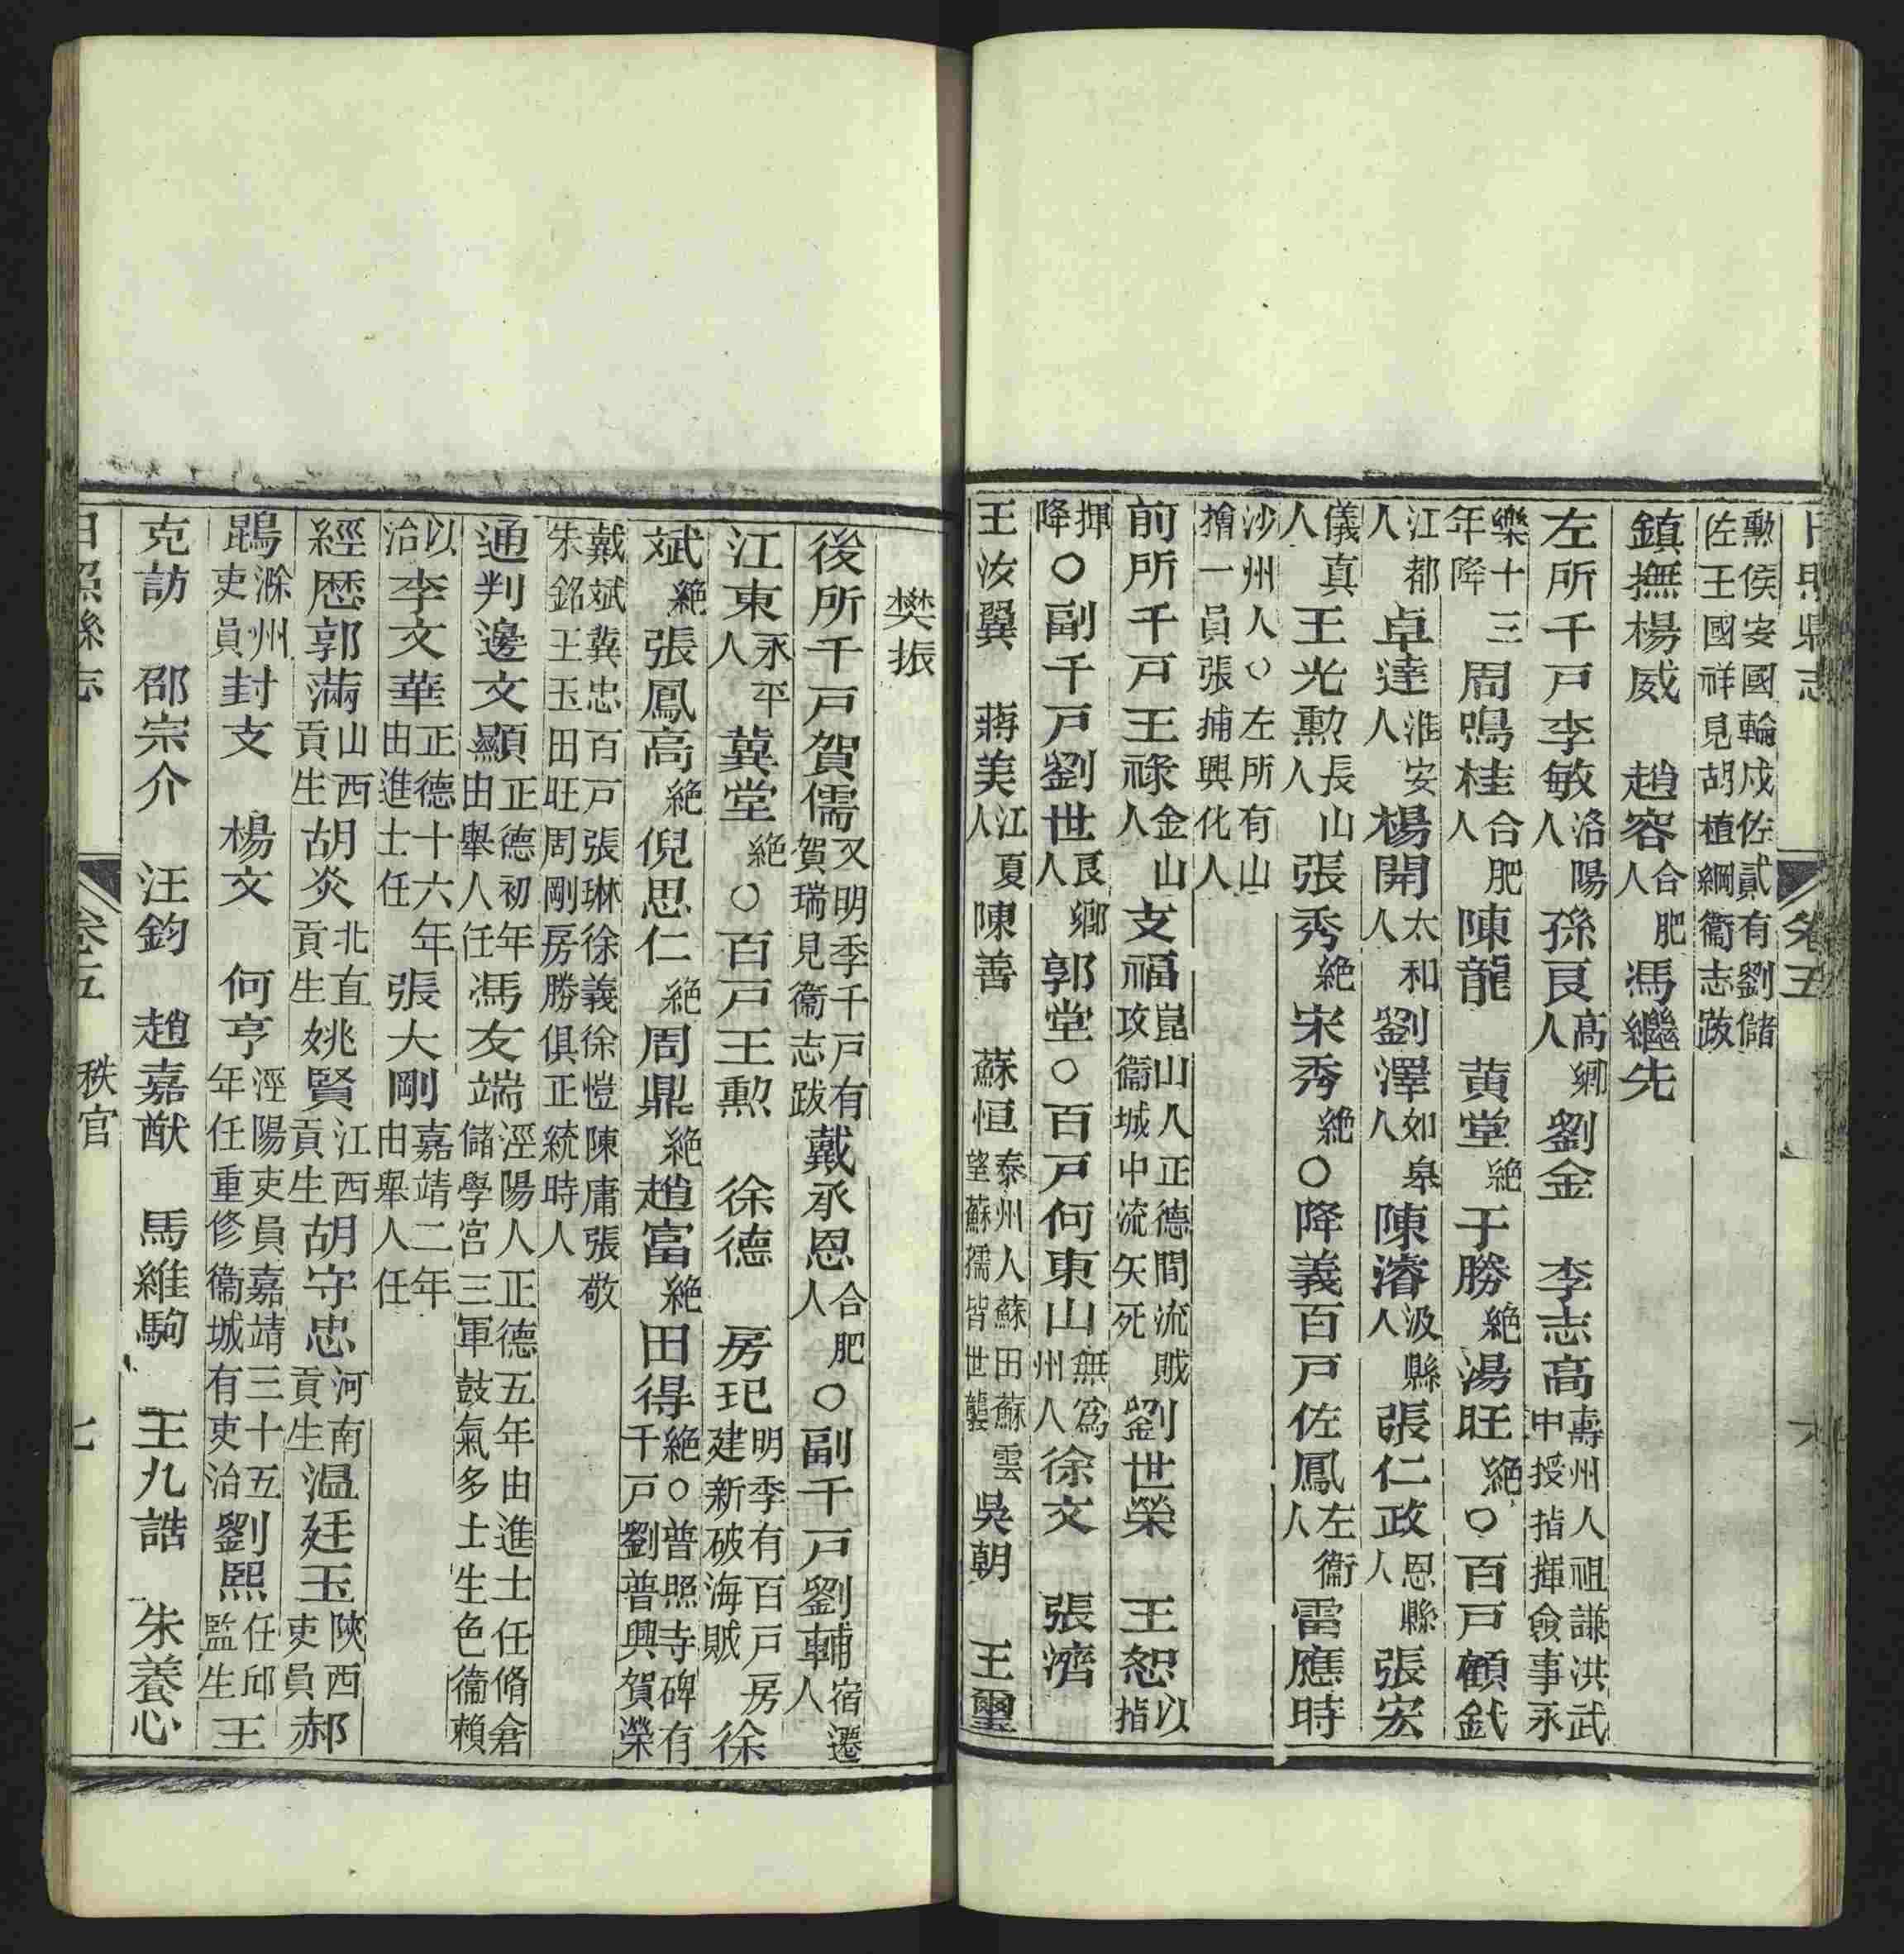 日照縣志 卷五
勳侯安國輪戍佐貳有劉儲
佐王國祥見胡植綱衞志跋
鎮撫楊威 趙容合肥人馮繼先
左所千戸李敏洛陽人孫良高鄉人劉金 李志高壽州人祖謙洪武中授指揮僉事永
樂十三年降周鳴桂合肥人陳龍 黄堂絶于勝絶湯旺絶○百戸顧鉞
江都人卓達淮安人楊開太和人劉澤如皋人陳濬汲縣人張仁政恩縣人張宏
儀真人王光勲長山人張秀絶宋秀絶○降義百戸佐鳳左衞人雷應時
沙州人○左所有山擒一員張捕興化人
前所千戸王祿金山人支福崑山人正德間流賊攻衞城中流矢死劉世榮 王恕以指
揮降○副千戸劉世良鄉人郭堂○百戸何東山無爲州人徐文 張濟
王汝翼 蔣美江夏人陳善 蘇恒泰州人蘇田蘇雲望蘇孺皆世襲吳朝 王璽
樊振
後所千戸賀儒又明季千戸有賀瑞見衞志跋戴承恩合肥人○副千戸劉輔宿遷人
江東永平人冀堂絶○百戸王勲 徐德 房玘明季有百戸房建新破海賊徐
斌絶張鳳高絶倪思仁絶周鼎絶趙富絶田得絶○普照寺碑有千戸劉普興賀榮
戴斌冀忠百戸張琳徐義徐愷陳庸張敬
朱銘王玉田旺周剛房勝俱正統時人
通判邊文顯正德初年由舉人任馮友端涇陽人正德五年由進士任脩倉儲學宮三軍鼓氣多士生色衞賴
以治李文華正德十六年由進士任張大剛嘉靖二年由舉人任
經歷郭滿山西貢生胡炎北直貢生姚賢江西貢生胡守忠河南貢生温廷玉陝西吏員郝
鵾滁州吏員封支 楊文 何亨涇陽吏員嘉靖三十五年任重修衞城有吏治劉熙任邱監生王
克訪 邵宗介 汪鈞 趙嘉猷 馬維駒 王九誥 朱養心
日照縣志 卷五 秩官 七